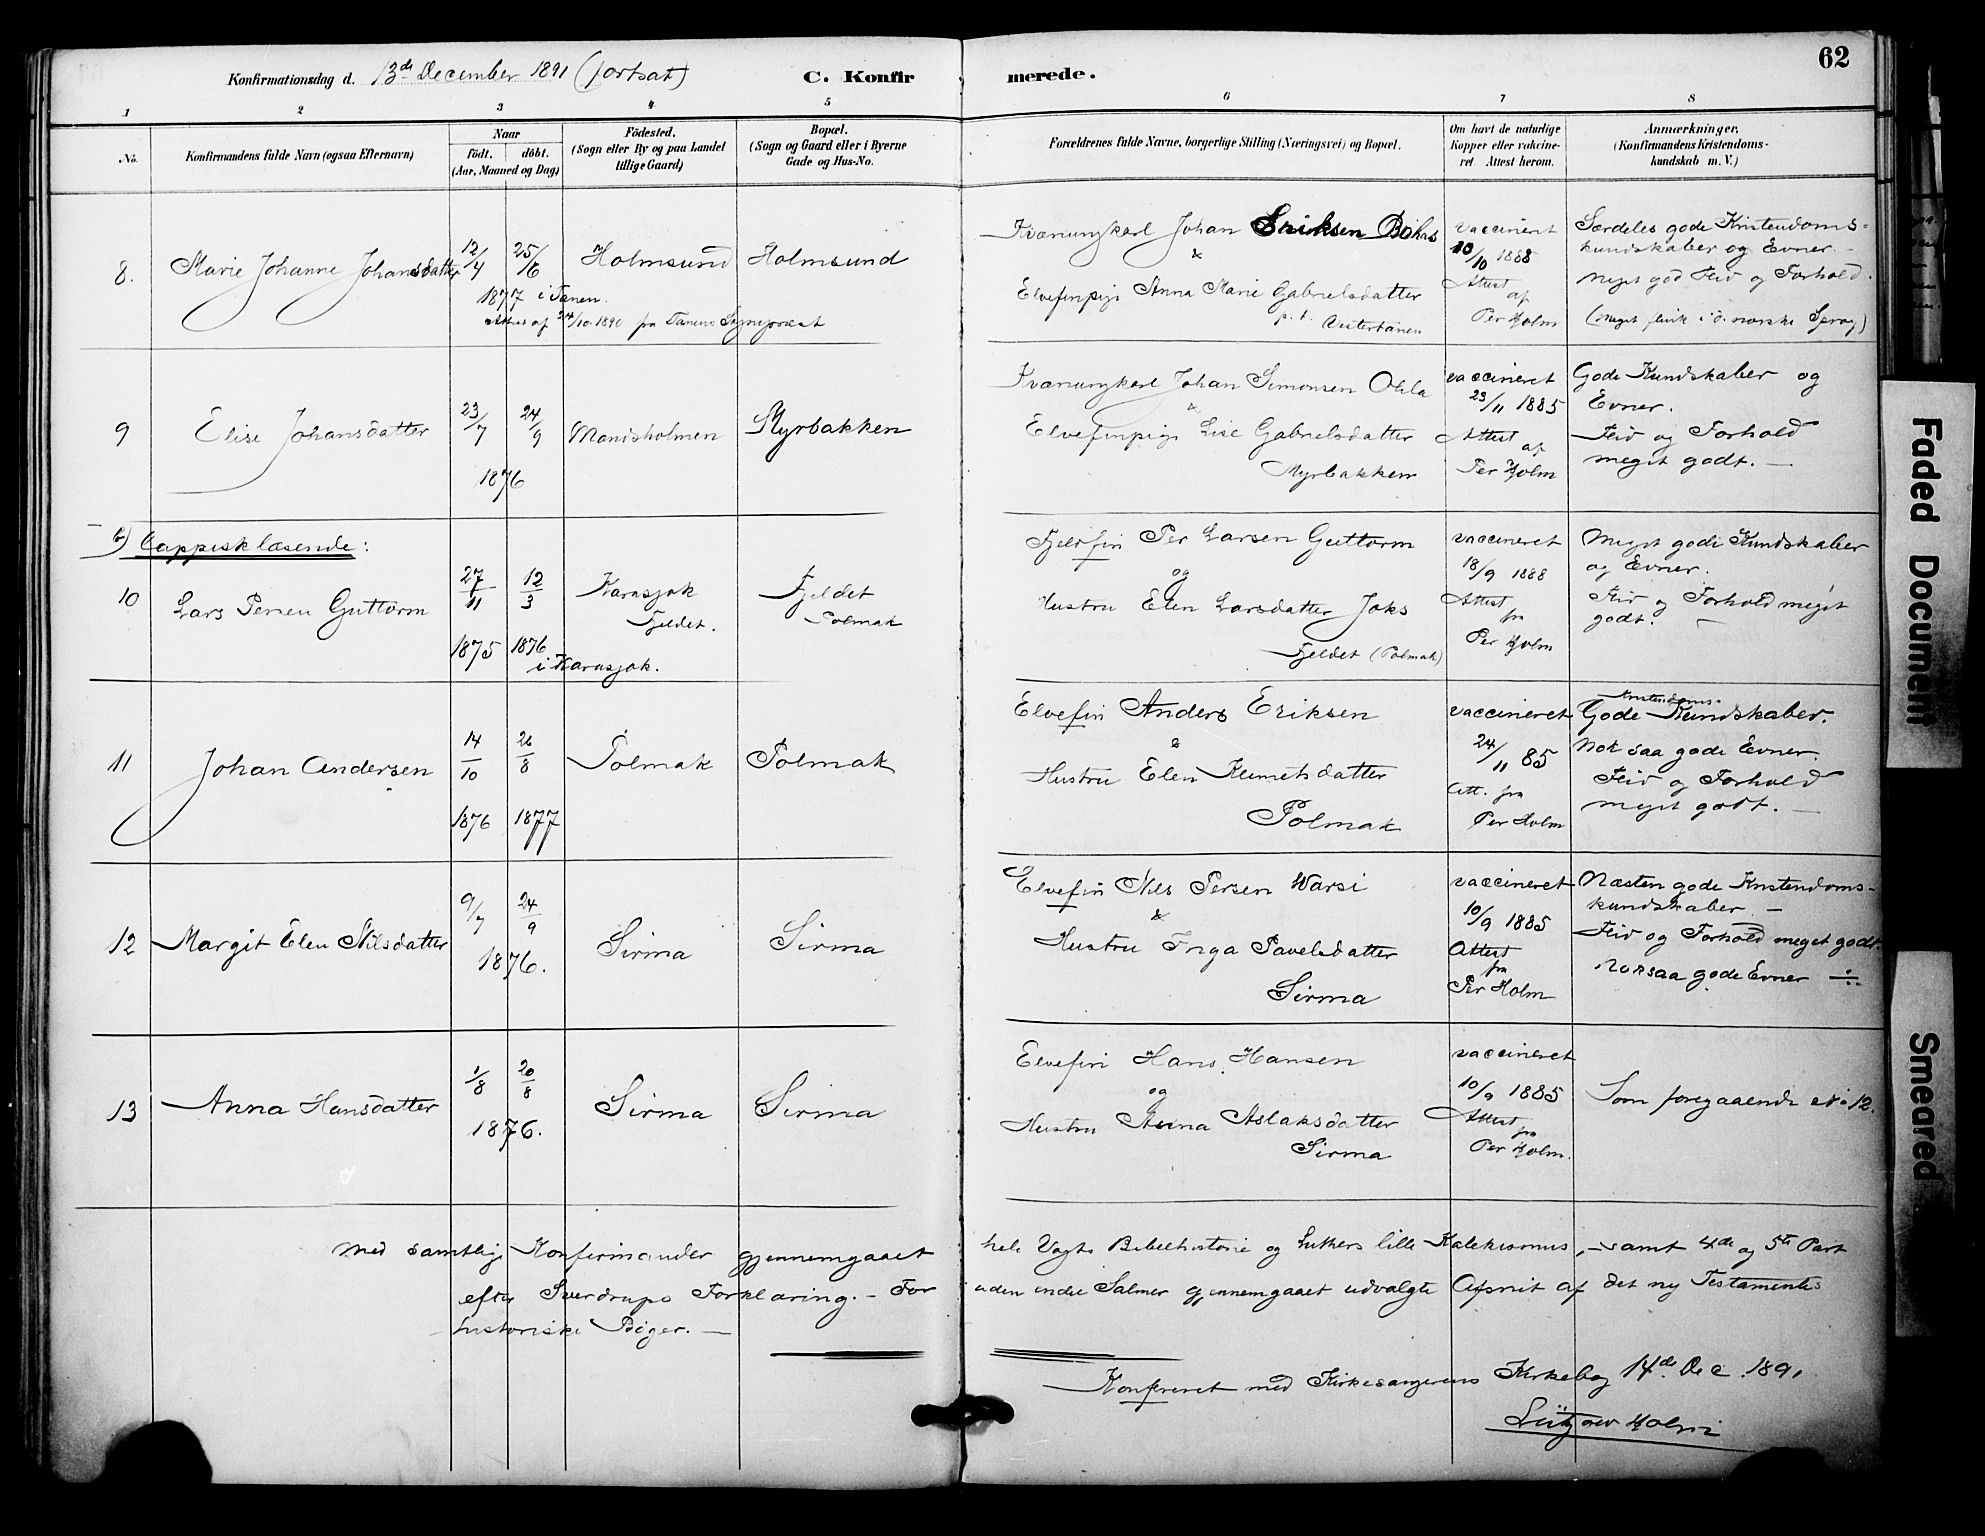 62
Konfirmationsdag d. 13de December 1891 (fortsat)
C. Konfirmerede.
1 2 3 4 5 6 7 8
No.
Konfirmandens fulde Navn (ogsaa Efternavn)
Naar
födt. döbt.
(Aar, Maaned og Dag)
Födested.
(Sogn eller By og paa Landet
tillige Gaard)
Bopæl.
(Sogn og Gaard eller i Byerne
Gade og Hus-No.
Forældrenes fulde Navne, borgerlige Stilling (Næringsvei) og Bopæl.
Om havt de naturlige
Kopper eller vakcine-
ret. Attest herom.
Anmærkninger.
(Konfirmandens Kristendoms-
kundskab m. V.)
8. Marie Johanne Johansdatter
12/4 25/6
1877 i Tanen.
Attest af 24/10 1890 fra Tanens Sognepræst
Holmsund
Holmsund
Kvænungkarl Johan Eriksen Bohas
&
Elvefinpige Anna Marie Gabrielsdatter
p. t. Vestertanen
vaccineret
10/10 1888
Attest
af
Per Holm
Særdeles gode Kristendoms-
kundskaber og Evner. -
Meget god Flid og Forhold.
(Meget flink i d. norske Sprog)
9 Elise Johansdatter
23/7 24/9
1876
Mandsholmen
Myrbakken
Kvænungkarl Johan Simonsen Ohla
&
Elvefinpige Lise Gabrielsdatter
Myrbakken
vaccineret
23/11 1885
Attest
af
Per Holm
Gode Kundskaber og
Evner.
Flid og Forhold
meget godt. -
b) Lappisk læsende:
10 Lars Persen Guttorm
27/11 12/3
1875 1876
i Karasjok.
Karasjok
Fjeldet.
Fjeldet
Polmak
Fjeldfin Per Larsen Guttorm
og
Hustru Elen Larsdatter Joks
Fjeldet (Polmak)
vaccineret
18/9 1888
Attest
fra
Per Holm
Meget gode Kundskaber
og Evner.
Flid og Forhold meget
godt. -
11 Johan Andersen
14/10 26/8
1876 1877
Polmak
Polmak
Elvefin Anders Eriksen
&
Hustru Elen Klemetsdatter
Polmak
vaccineret
24/11 85
Att. fra
Per Holm
Kristendoms-
Gode Kundskaber.
Nok saa gode Evner.
Flid og Forhold
meget godt. -
12 Margit Elen Nilsdatter
9/7 24/9
1876.
Sirma
Sirma
Elvefin Nils Persen Warsi
&
Hustru Inga Pavelsdatter
Sirma
vaccineret
10/9 1885
Attest
fra
Per Holm
Næsten gode Kristendoms-
kundskaber -
Flid og Forhold meget godt.
Noksaa gode Evner
13 Anna Hansdatter
1/8 20/8
1876.
Sirma
Sirma
Elvefin Hans Hansen
og
Hustru Anna Aslaksdatter
Sirma
vaccineret
10/9 1885
Attest
fra
Per Holm.
Som foregaaende No 12.
Med samtlige Konfirmander gjennemgaaet hele Vogts Bibelhistorie og Luthers lille Katekismus, - samt 4de og 5te Part
efter Sverdrups Forklaring. - Foruden endel Salmer gjennemgaaet udvalgte Afsnit af det ny Testamentes
historiske Bøger. -
Konfereret med Kirkesangerens Kirkebog 14de Dec. 1891
Lützow Holm
Faded Document
Smeared